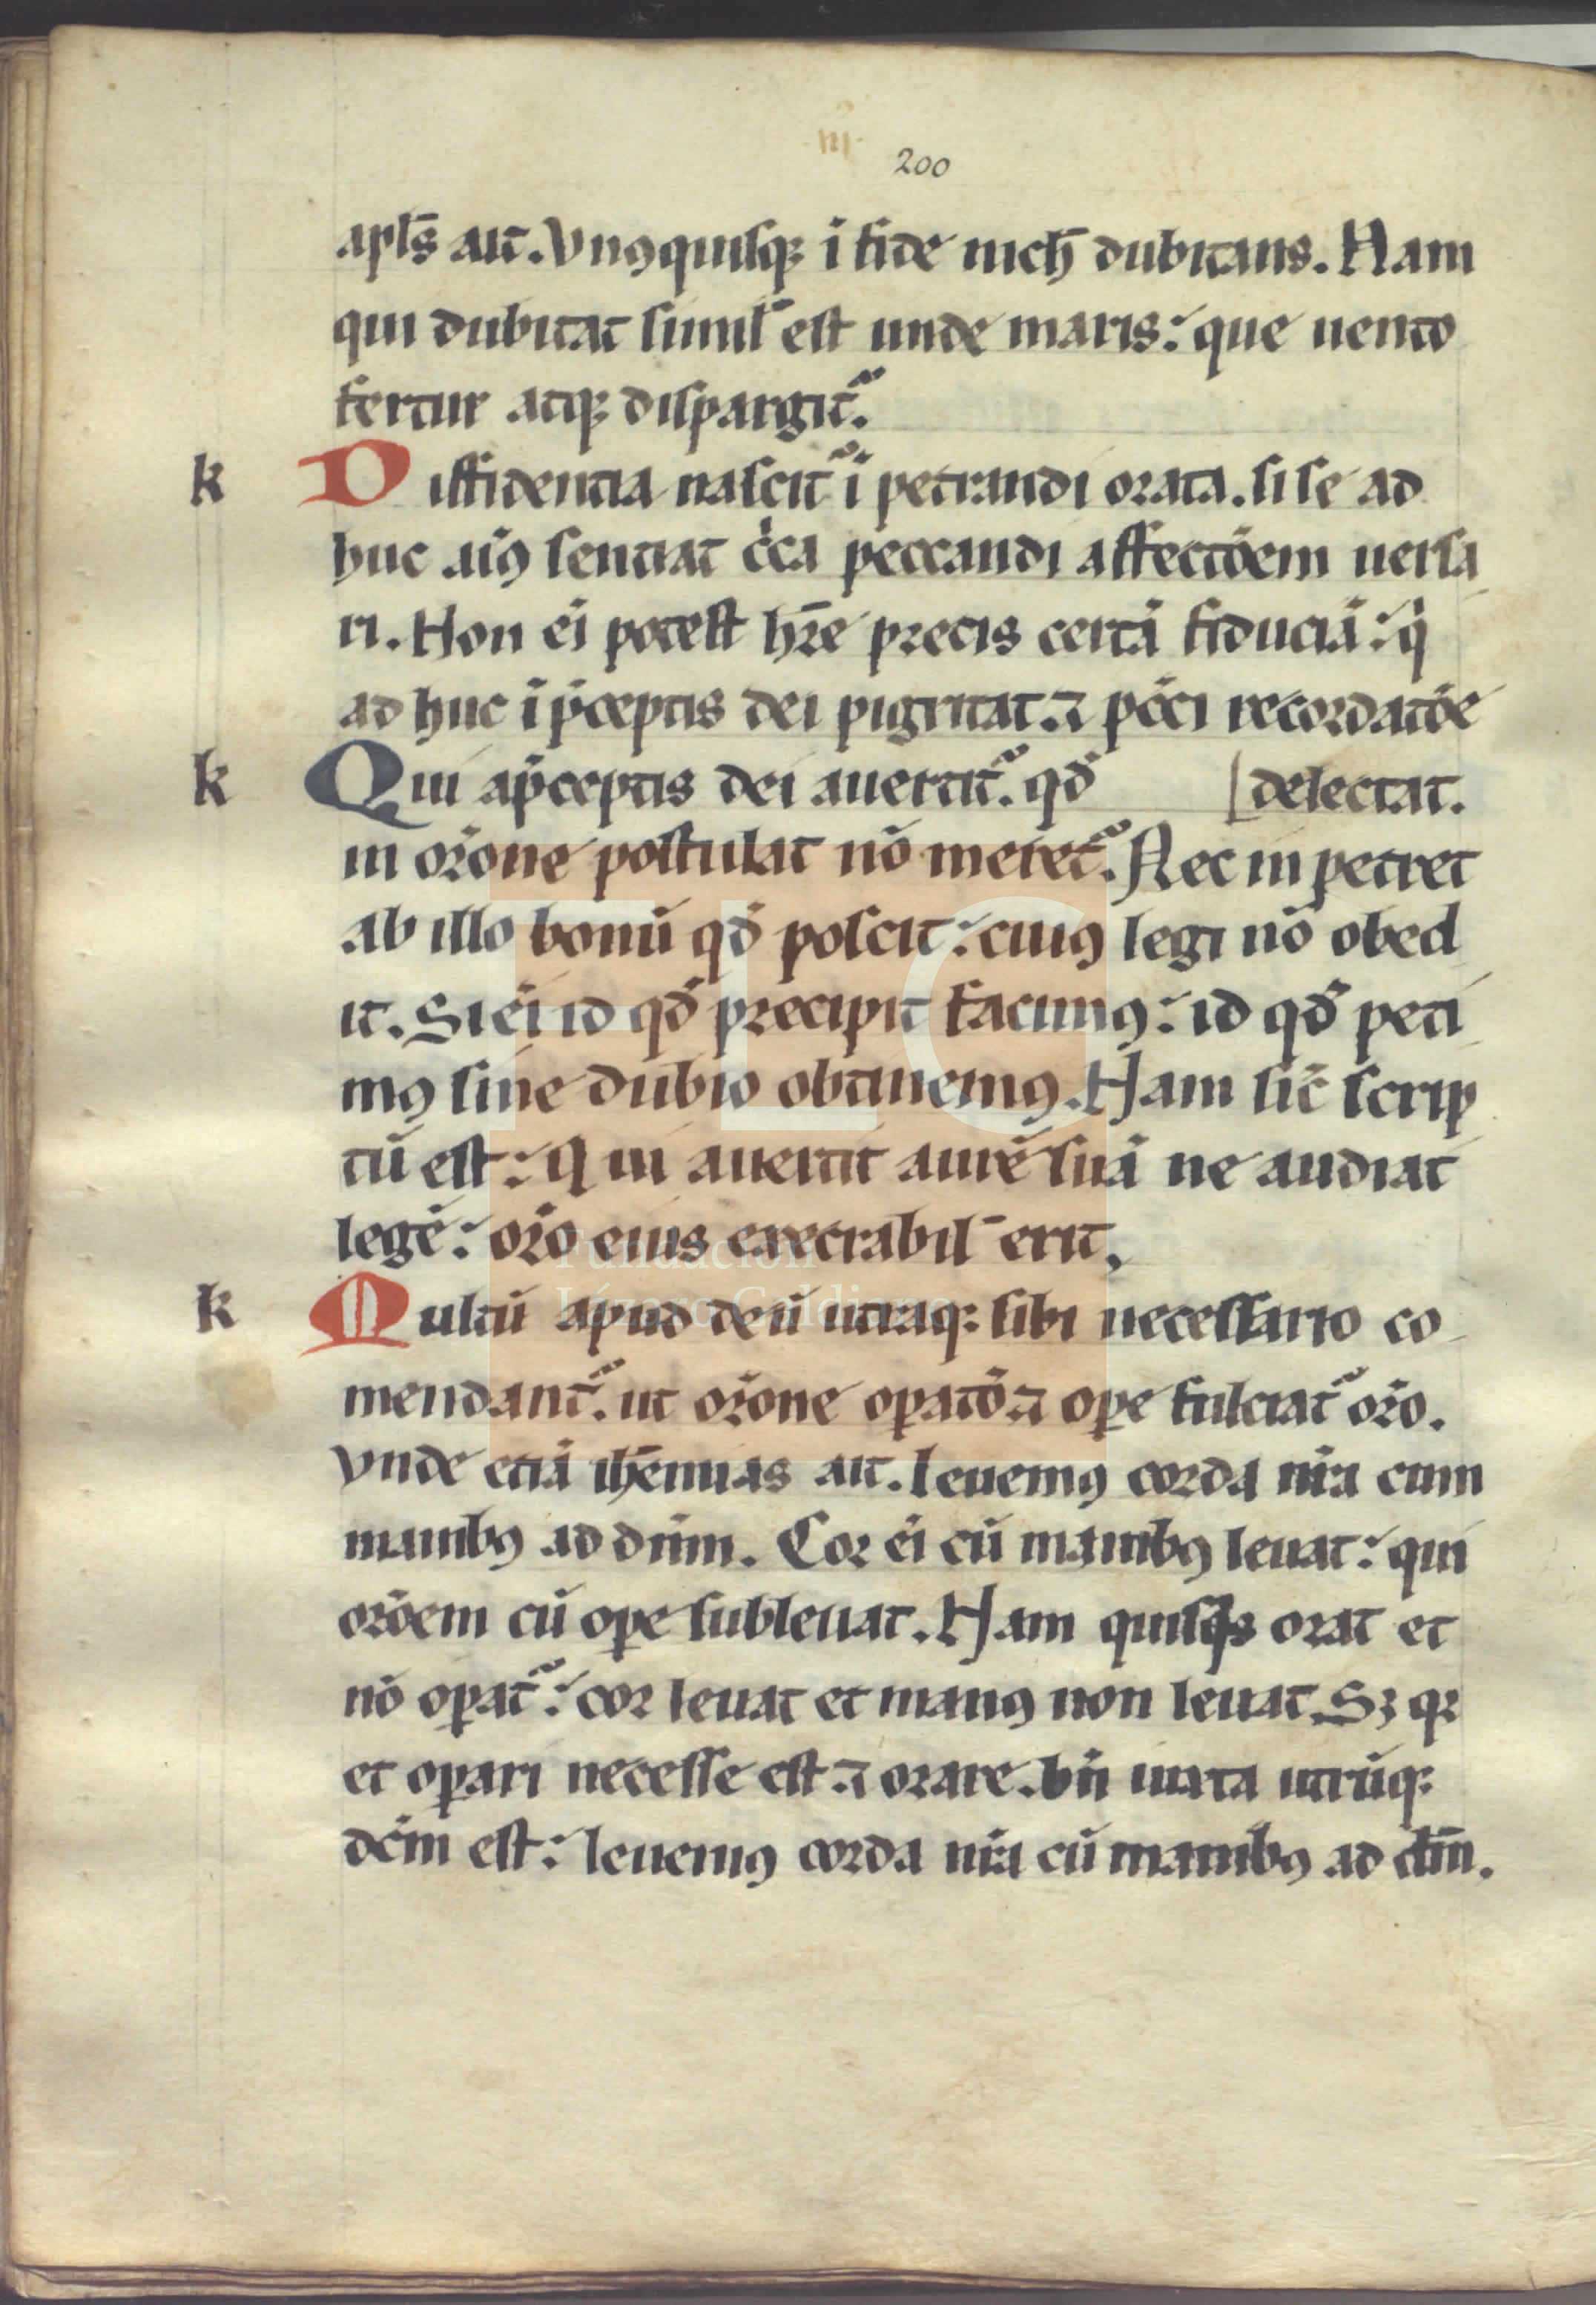 200
apl̄s ait̄. Vnꝰquisqꝫ ī fide nich̄ dubitans. Nam
qui dubitat simil̄ est unde maris: que uento
fertur atqꝫ dispargit᷑.
k Diffidentia nascit᷑ īpetrandi orata. si se ad
huc aīꝰ sentiat cͥca peccandi affectōem uersa
ri. Non eī potest hr̄e precis certā fiduciā: qͥ
ad huc ī p̄ceptis dei pigritat. ⁊ pcc̄i recordatōe
k Qui a p̄ceptis dei auertit᷑. qd̄ [delectat.
in orōne postulat nō meret᷑. Nec inpetret
ab illo bonū qd̄ poscit: cuiꝰ legi nō obed
it. Si eī id qd̄ precipit facimꝰ: id qd̄ peti
mꝰ sine dubio obtinemꝰ. Nam sic̄ scrip
tū est: Qui auertit aurē suā ne audiat
legē: orō eius execrabil̄ erit.
k Multū apud deū utraqꝫ sibi necessario co
mendant᷑. ut orōne oꝑatō. ⁊ oꝑe fulciat᷑ orō.
Vnde etiā ih̄emias ait. leuemꝰ corda nr̄a cum
manibꝰ ad dn̄m. Cor eī cū manibꝰ leuat: qui
orōem cū oꝑe subleuat. Nam quisqͥs orat et
nō oꝑat᷑: cor leuat et manꝰ non leuat. Sꝫ qꝛ
et oꝑari necesse est. ⁊ orare. bn̄ iuxta utrūqꝫ
dc̄m est: leuemꝰ corda nr̄a cū manibꝰ ad dm̄.
FLG
Fundación
Lázaro Galdiano